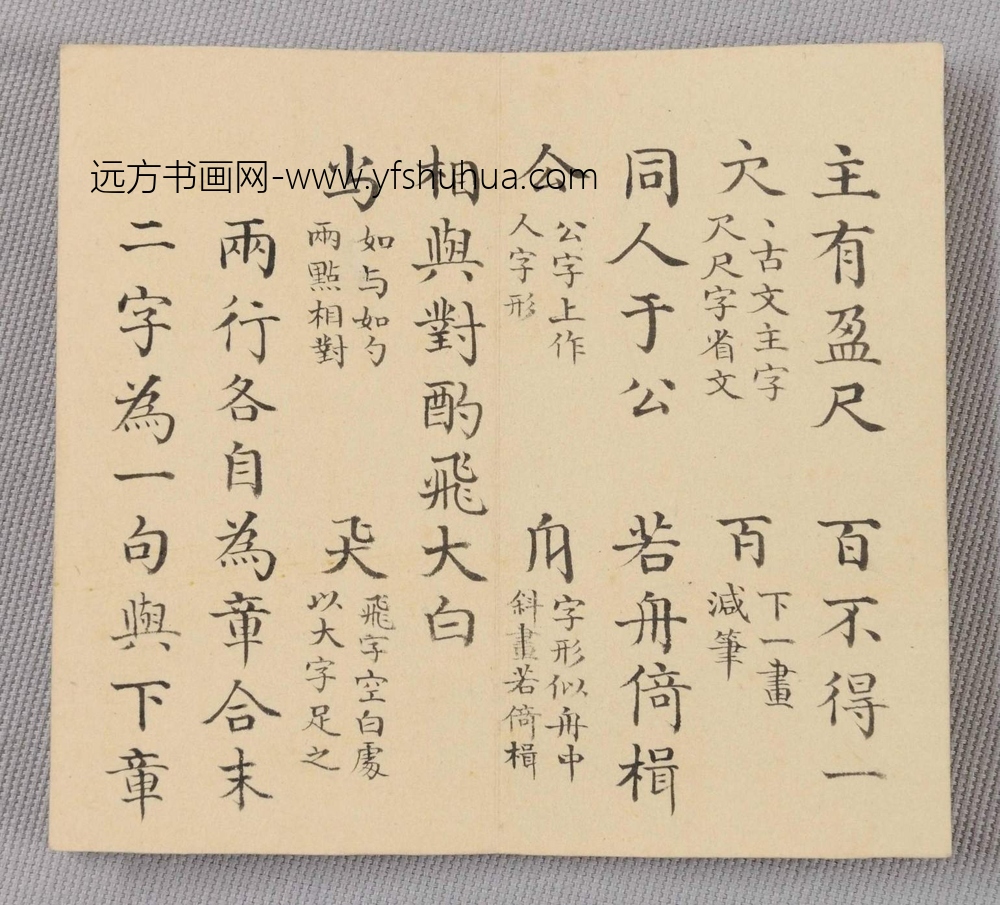 主有盈尺　百不得一
丶古文主字
尺字省文
下一畫
減筆
同人于公　若舟倚楫
公字上作
人字形
字形似舟中
斜畫若倚楫
相與對酌飛大白
如与如勺
兩點相對
飛字空白處
以大字足之
兩行各自為章合末
二字為一句與下章
远方书画网-www.yfshuhua.com